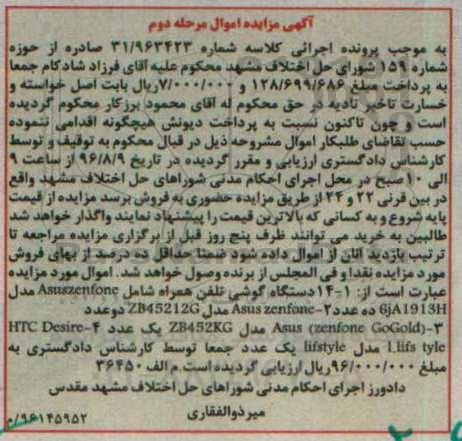 آگهی مزایده اموال مرحله دوم
به موجب پرونده اجرائی کلاسه شماره ۳۱/۹۶۳۴۲۳ صادره از حوزه
شماره ۱۵۹ شورای حل اختلاف مشهد محکوم علیه آقای فرزاد شادکام جمعا
به پرداخت مبلغ ۱۲۸/۶۹۹/۶۸۶ و ۷/۰۰۰/۰۰۰ ریال بابت اصل خواسته و
خسارت تاخیر تادیه در حق محکوم له آقای محمود برزکار محکوم گردیده
است و چون تاکنون نسبت به پرداخت دیونش هیچگونه اقدامی ننموده
حسب تقاضای طلبکار اموال مشروحه ذیل در قبال محکوم به توقیف و توسط
کارشناس دادگستری ارزیابی و مقرر گردیده در تاریخ ۹۶/۸/۹ از ساعت ۹
الی ۱۰ صبح در محل اجرای احکام مدنی شوراهای حل اختلاف مشهد واقع
در بین قرنی ۲۲ و ۲۴ از طریق مزایده حضوری به فروش برسد مزایده از قیمت
پایه شروع و به کسانی که بالاترین قیمت را پیشنهاد نمایند واگذار خواهد شد
طالبین به خرید می توانند ظرف پنج روز قبل از برگزاری مزایده مراجعه تا
ترتیب بازدید آنان از اموال داده شود ضمنا حداقل ده درصد از بهای فروش
مورد مزایده نقدا و فی المجلس از برنده وصول خواهد شد. اموال مورد مزایده
عبارت است از: ۱-۱۴ دستگاه گوشی تلفن همراه شامل Asuszenfone مدل
6jA1913H ده عدد ۲- Asus zenfone مدل ZB45212G دوعدد
۳- Asus (zenfone GoGold) مدل ZB452KG یک عدد ۴- HTC Desire
l.lifs tyle مدل lifstyle یک عدد جمعا توسط کارشناس دادگستری به
مبلغ ۹۶/۰۰۰/۰۰۰ ریال ارزیابی گردیده است. م الف ۳۶۴۵۰
دادورز اجرای احکام مدنی شوراهای حل اختلاف مشهد مقدس
میرذوالفقاری
۹۶۱۴۵۹۵۲/م